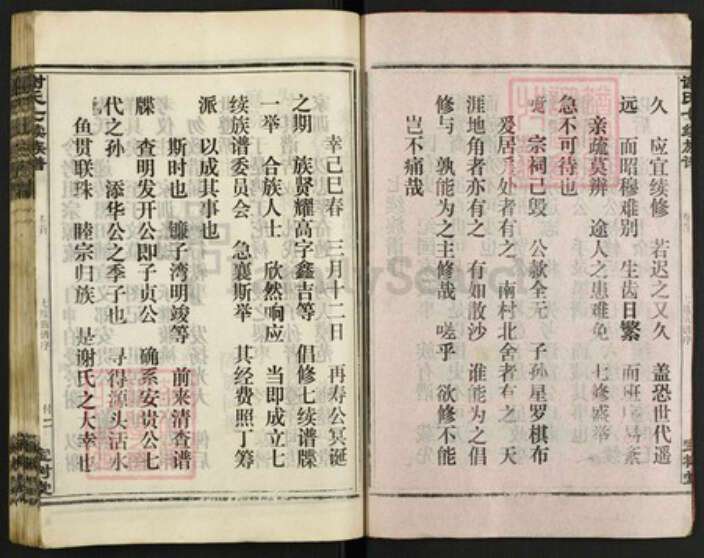 谢氏七续族谱
久 应宜续修 若迟之又久 盖恐世代遥
远 而昭穆难别 生齿日繁 而班 易紊
亲疏莫辨 途人之患难免 七修盛举
急不可待也
噫 宗祠已毁 公款全元 子孙星罗棋布
爰居爰处者有之 南村北舍者有之 天
涯地角者亦有之 有如散沙 谁能为之倡
修与 孰能为之主修哉 嗟乎 欲修不能
岂不痛哉
幸己巳春 三月十二日 再寿公冥诞
之期 族贤耀高字鑫吉等 倡修七续谱牒
一举 合族人士 欣然响应 当即成立七
续族谱委员会 急襄斯举 其经费照丁筹
派 以成其事也
斯时也 镰子湾明竣等 前来清查谱
牒 查明发开公即子贞公 确系安贵公七
代之孙 添华公之季子也 寻得源头活水
鱼贯联珠 睦宗归族 是谢氏之大幸也
谢氏七续族谱
宝树堂